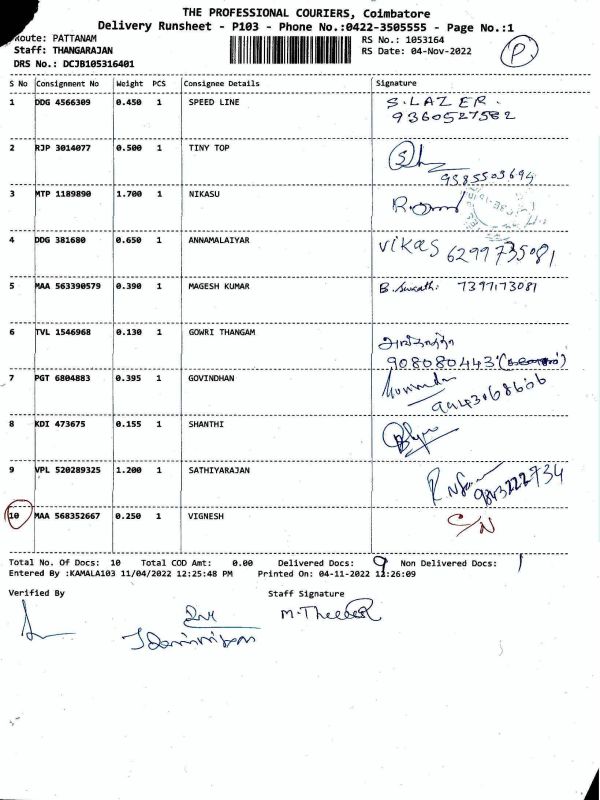 THE PROFESSIONAL COURIERS, Coimbatore
Delivery Runsheet - P103 - Phone No.:0422-3505555 - Page No.:1
Route: PATTANAM
RS No.: 1053164
Staff: THANGARAJAN
RS Date: 04-Nov-2022
P
DRS No.: DCJB105316401
S No Consignment No Weight PCS Consignee Details Signature
1 DDG 4566309 0.450 1 SPEED LINE S.LAZER.
9360527582
2 RJP 3014077 0.500 1 TINY TOP
9385503694
3 MTP 1189890 1.700 1 NIKASU
4 DDG 381680 0.650 1 ANNAMALAIYAR vikas 6299735081
5 MAA 563390579 0.390 1 MAGESH KUMAR 7397173081
6 TVL 1546968 0.130 1 GOWRI THANGAM
908080443
7 PGT 6804883 0.395 1 GOVINDHAN
8 KDI 473675 0.155 1 SHANTHI
9 VPL 520289325 1.200 1 SATHIYARAJAN
9843222734
10 MAA 568352667 0.250 1 VIGNESH C/N
Total No. Of Docs: 10 Total COD Amt: 0.00 Delivered Docs: 9 Non Delivered Docs: 1
Entered By :KAMALA103 11/04/2022 12:25:48 PM Printed On: 04-11-2022 12:26:09
Verified By Staff Signature